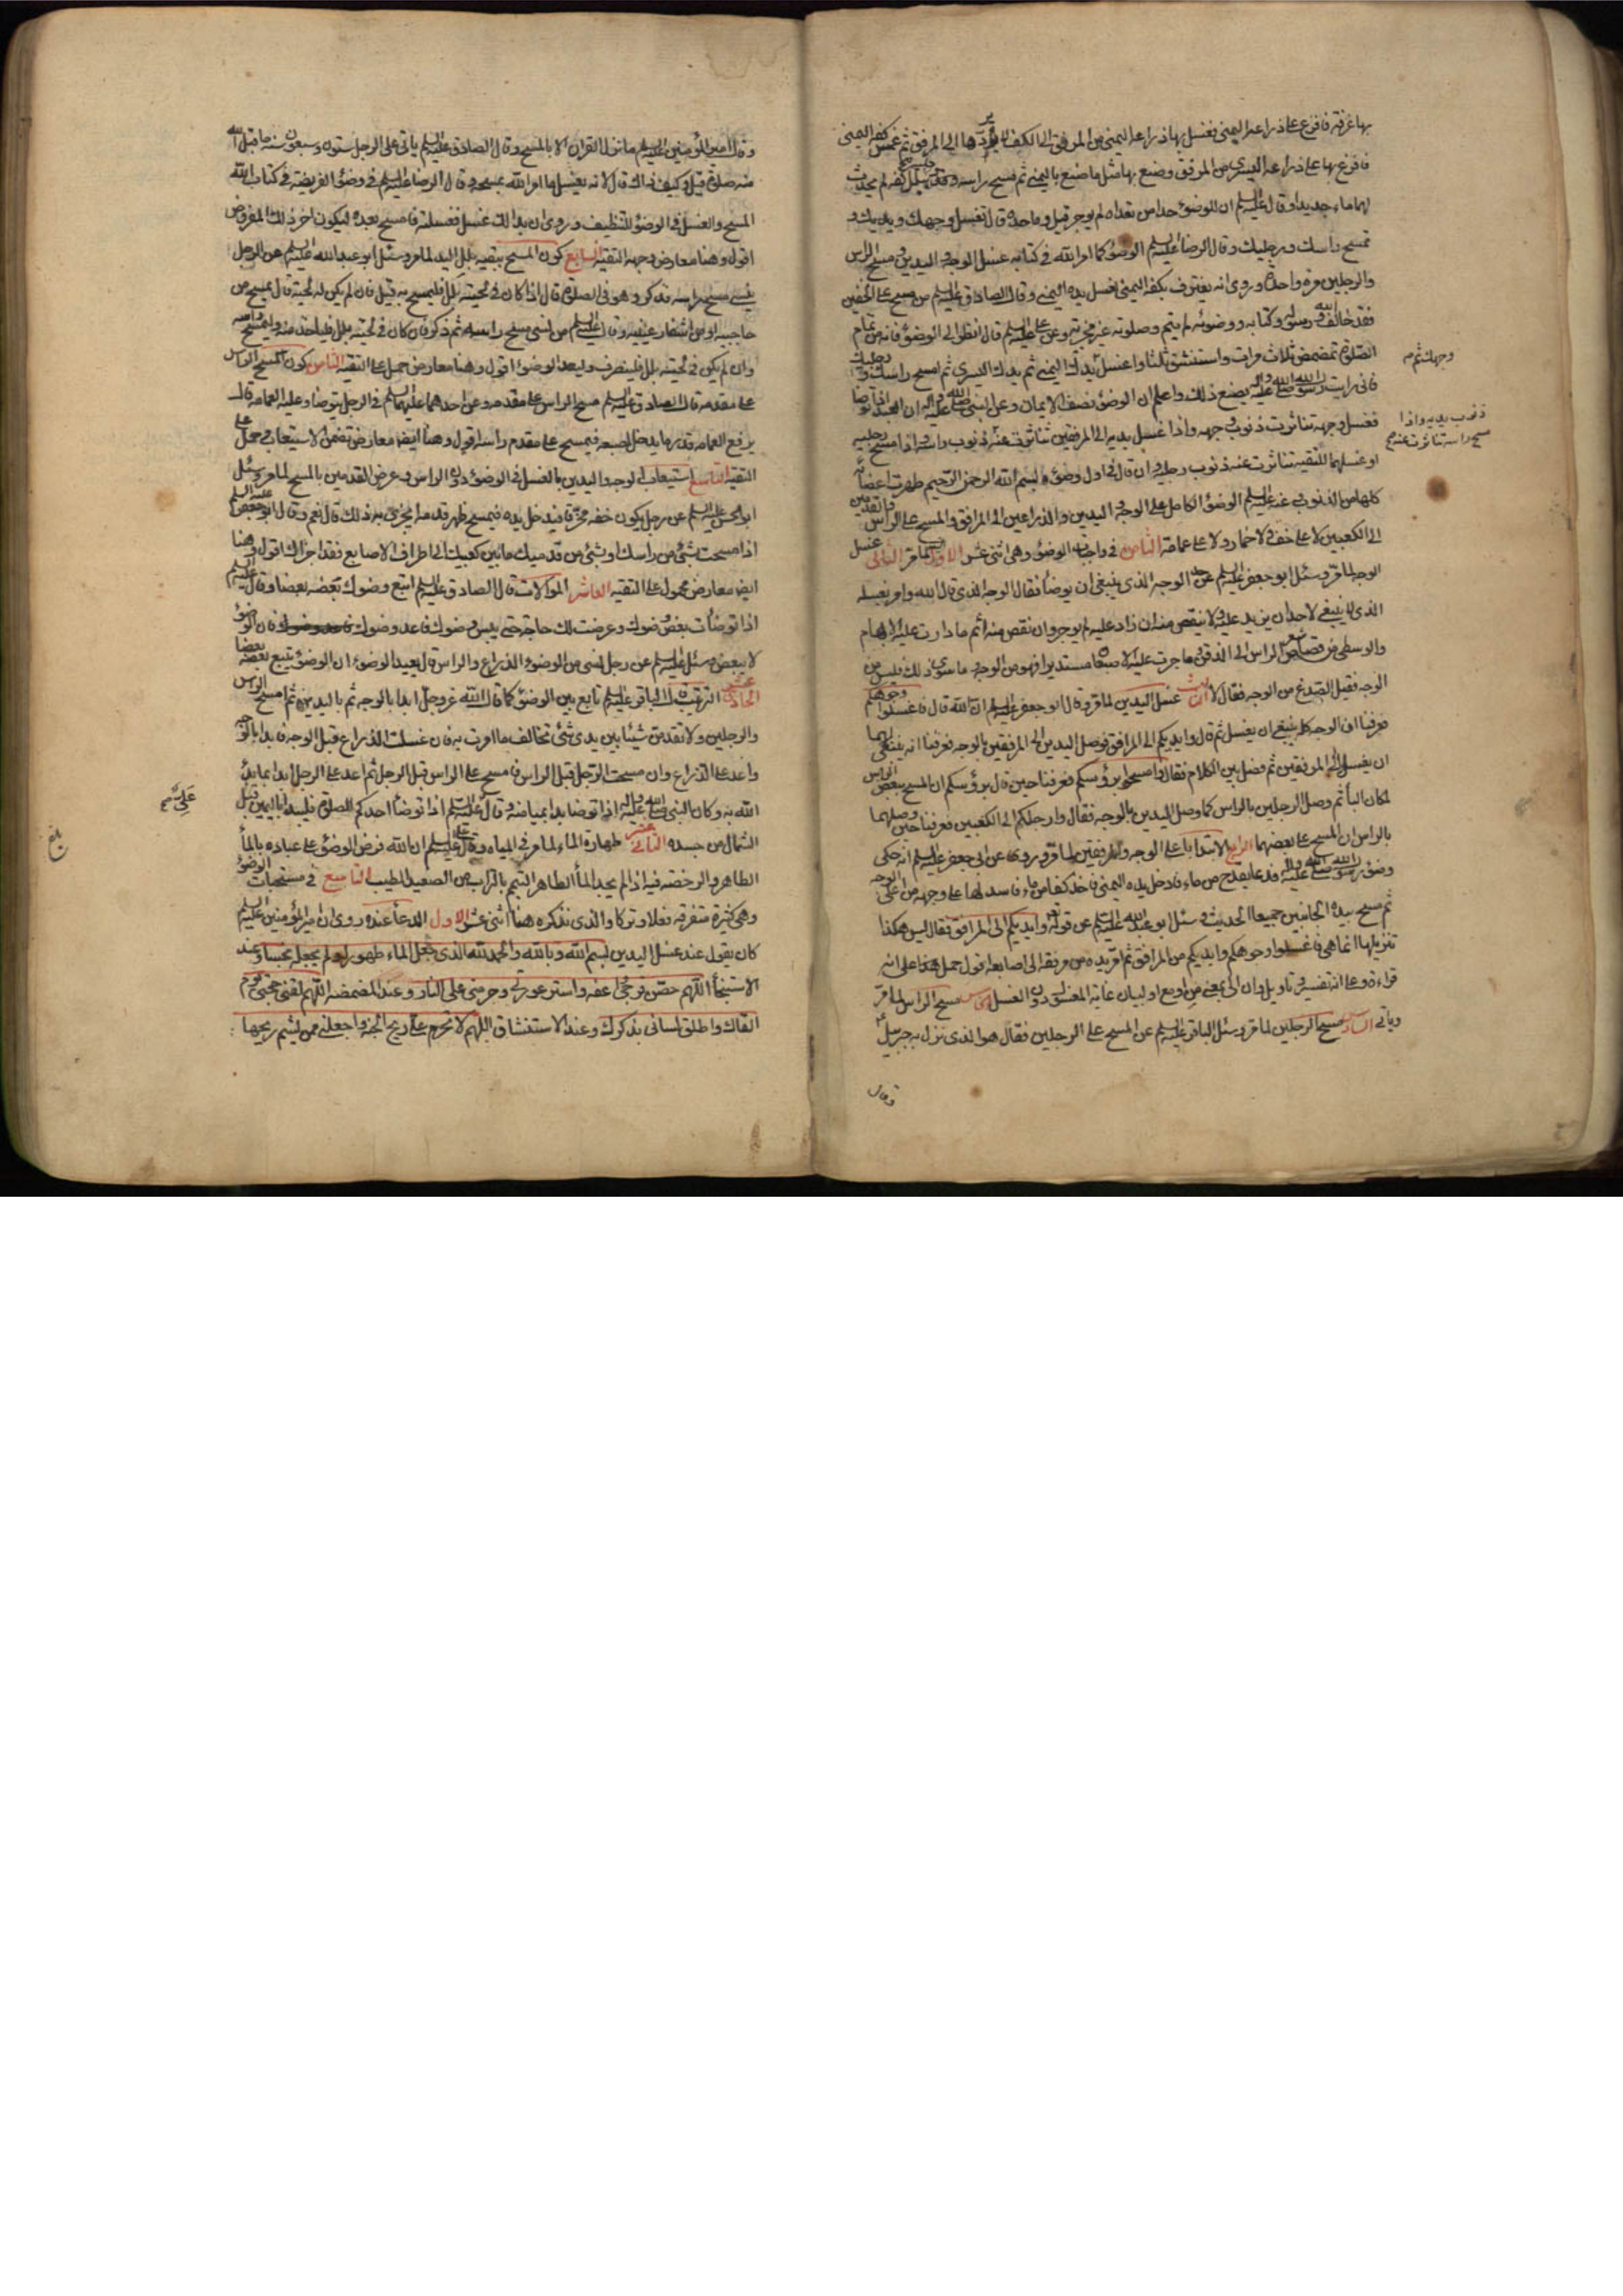 بها غرفة فافرغ على ذراعه اليمنى فغسل بها ذراعه اليمنى من المرفق الى الكف لا يردها الى المرفق ثم غمس كفه اليمنى
فافرغ بها على ذراعه اليسرى من المرفق وصنع بها مثل ما صنع باليمنى ثم مسح راسه وقدميه ببلل كفه لم يحدث
لهما ماء جديدا وقال عليه السلم ان للوضوء حدا من تعداه لم يوجر قيل وما حده قال تغسل وجهك ويديك و
تمسح راسك ورجليك وقال الرضا عليه السلم الوضوء كما امر الله في كتابه غسل الوجه واليدين ومسح الراس
والرجلين مرة واحدة وروى انه يغترف بكفه اليمنى لغسل يده اليمنى وقال الصادق عليه السلم من مسح على الخفين
فقد خالف الله ورسوله وكتابه ووضوئه لم يتم وصلوته غير مجزية وعن علي عليه السلم قال انظر الى الوضوء فانه من تمام
الصلوة تمضمض ثلاث مرات واستنشق ثلثا واغسل يدك اليمنى ثم يدك اليسرى ثم امسح راسك ورجليك
وجهك ثم صح
فاني رايت رسول الله صلى الله عليه واله يصنع ذلك واعلم ان الوضوء نصف الايمان وعن النبي صلى الله عليه واله ان العبد اذا توضا
فغسل وجهه تناثرت ذنوب وجهه واذا غسل يديه الى المرفقين تناثرت عنه ذنوب راسه واذا مسح رجليه
ذنوب يديه واذا
مسح راسه تناثرت عنه صح
او غسلهما للتقية تناثرت عنه ذنوب رجليه وان قال في اول وضوئه بسم الله الرحمن الرحيم طهرت اعضائه
كلها من الذنوب وعنه عليه السلم الوضوء الكامل على الوجه واليدين والذراعين الى المرافق والمسح على الراس والقدمين
الى الكعبين لا على خف ولا خمار ولا على عمامة الثامن في واجبات الوضوء وهي اثنى عشر الاول النية لما مر الثاني غسل
الوجه لما مر وسئل ابو جعفر عليه السلم عن حد الوجه الذي ينبغي ان يوضأ فقال الوجه الذي قال الله وامر بغسله
الذي لا ينبغي لاحد ان يزيد عليه ولا ينقص منه ان زاد عليه لم يوجر وان نقص منه اثم ما دارت عليه الابهام
والوسطى من قصاص شعر الراس الى الذقن وما جرت عليه الاصبعان مستديرا فهو من الوجه وما سوى ذلك فليس من
الوجه فقيل الصدغ من الوجه فقال لا الثالث غسل اليدين لما مر وقال ابو جعفر عليه السلم ان الله قال فاغسلوا وجوهكم
فعرفنا ان الوجه كله ينبغي ان يغسل ثم قال وايديكم الى المرافق فوصل اليدين الى المرفقين بالوجه فعرفنا انه ينبغي لهما
ان يغسلا الى المرفقين ثم فصل بين الكلام فقال وامسحوا برؤسكم فعرفنا حين قال برؤسكم ان المسح ببعض الراس
لمكان الباء ثم وصل الرجلين بالراس كما وصل اليدين بالوجه فقال وارجلكم الى الكعبين فعرفنا حين وصلهما
بالراس ان المسح على بعضهما الرابع الابتدا باعلى الوجه والمرفقين لما مر وروى عن ابي جعفر عليه السلم انه حكى
وضوء رسول الله صلى الله عليه واله فدعا بقدح من ماء فادخل يده اليمنى فاخذ كفا من ماء فاسدلها على وجهه من اعلى الوجه
ثم مسح بيده الجانبين جميعا الحديث وسئل ابو عبد الله عليه السلم عن قوله تع وايديكم الى المرافق فقال ليس هكذا
تنزيلها انما هي فاغسلوا وجوهكم وايديكم من المرافق ثم امر يده من مرفقه الى اصابعه اقول حمل هذا على انه
قراءة وعلى انه تفسير وتاويل وان الى بمعنى من او مع او لبيان غاية المغسول دون الغسل الخامس مسح الراس لما مر
وياتي السادس مسح الرجلين لما مر وسئل الباقر عليه السلم عن المسح على الرجلين فقال هو الذي نزل به جبرئيل
وقال
وقال امير المؤمنين عليه السلم ما نزل القران الا بالمسح وقال الصادق عليه السلم ياتي على الرجل ستون وسبعون سنة ما قبل الله
منه صلوة قيل وكيف ذاك قال لانه يغسل ما امر الله بمسحه وقال الرضا عليه السلم في وضوء الفريضة في كتاب الله
المسح والغسل في الوضوء للتنظيف وروى ان بدا لك غسل فغسلته فامسح بعده ليكون اخر ذلك المفروض
اقول وهنا معارض وجهه التقية السابع كون المسح ببقية بلل اليد لما مر وسئل ابو عبد الله عليه السلم عن الرجل
ينسى مسح راسه فذكر وهو في الصلوة قال اذا كان في لحيته بلل فليمسح به قيل فان لم يكن له لحية قال يمسح من
حاجبيه او من اشفار عينيه وقال عليه السلم من نسى مسح راسه ثم ذكر فان كان في لحيته بلل فلياخذ منه وليمسح راسه
وان لم يكن في لحيته بلل فلينصرف وليعد الوضوء اقول وهنا معارض حمل على التقية الثامن كون المسح الراس
على مقدمه قال الصادق عليه السلم مسح الراس على مقدمه وعن احدهما عليهما السلم في الرجل يتوضا وعليه العمامة قال
يرفع العمامة قدر ما يدخل اصبعه فيمسح على مقدم راسه اقول وهنا ايضا معارض تضمن الاستيعاب حمل على
التقية التاسع استيعاب الوجه واليدين بالغسل في الوضوء دون الراس وعرض القدمين بالمسح لما مر وسئل
ابو الحسن عليه السلم عن رجل يكون خفه مخرقا فيدخل يده فيمسح ظهر قدمه ايجزي به ذلك قال نعم وقال ابو جعفر عليه السلم
اذا مسحت بشئ من راسك او بشئ من قدميك ما بين كعبيك الى اطراف الاصابع فقد اجزاك اقول وهنا
ايضا معارض محمول على التقية العاشر الموالات قال الصادق عليه السلم اتبع وضوءك بعضه بعضا وقال عليه السلم
اذا توضأت بعض وضوءك وعرضت لك حاجة حتى يبس وضوءك فاعد وضوءك فان الوضوء
لا يبعض وسئل عليه السلم عن رجل نسى من الوضوء الذراع والراس قال يعيد الوضوء ان الوضوء يتبع بعضه بعضا
الحادي عشر الترتيب قال الباقر عليه السلم تابع بين الوضوء كما قال الله عز وجل ابدا بالوجه ثم باليدين ثم امسح الراس
والرجلين ولا تقدمن شيئا بين يدي شئ تخالف ما امرت به فان غسلت الذراع قبل الوجه فابدا بالوجه
واعد على الذراع وان مسحت الرجل قبل الراس فامسح على الراس قبل الرجل ثم اعد على الرجل ابدا بما بدأ
الله به وكان النبي صلى الله عليه واله اذا توضا بدا بميامنه وقال عليه السلم اذا توضأ احدكم للصلوة فليبدا باليمين قبل
الشمال من جسده الثاني عشر طهارة الماء لما مر في المياه وقال علي عليه السلم ان الله فرض الوضوء على عباده بالماء
الطاهر والرخصة فيه اذا لم يجد الماء الطاهر التيمم بالتراب من الصعيد الطيب التاسع في مستحبات الوضوء
وهي كثيرة متفرقة فعلا وتركا والذي نذكره هنا اثنى عشر الاول الدعا عنده روى ان امير المؤمنين عليه السلم
كان يقول عند غسل اليدين بسم الله وبالله والحمد لله الذي جعل الماء طهورا ولم يجعله نجسا وعند
الاستنجاء اللهم حصن فرجي واعفه واستر عورتي وحرمني على النار وعند المضمضة اللهم لقني حجتي يوم
القاك واطلق لساني بذكرك وعند الاستنشاق اللهم لا تحرم علي ريح الجنة واجعلني ممن يشم ريحها
بلغ